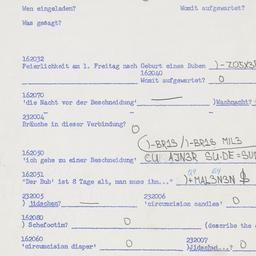 Wen eingeladen? Womit aufgewartet?
Was gesagt?
162032
Feierlichkeit am 1. Freitag nach Geburt eines Buben )-ZOSX3
162040
Womit aufgewartet? O
162070
'die Nacht vor der Beschneidung' )Wachnacht?
232004
Bräuche in dieser Verbindung? O
()-BR15/)-BR16 MIL3
162050
'ich gehe zu einer Beschneidung' CU AJN3R SU:DE=SU
162051
"Der Bub' ist 8 Tage alt, man muss ihn..." )+MAL3N3N
232005 232006
) Jidschen? 'circumcision candles' O
162080
) Schefoetim? O (describe the
162060 232007
'circumcision diaper' O )Jidschn...? O